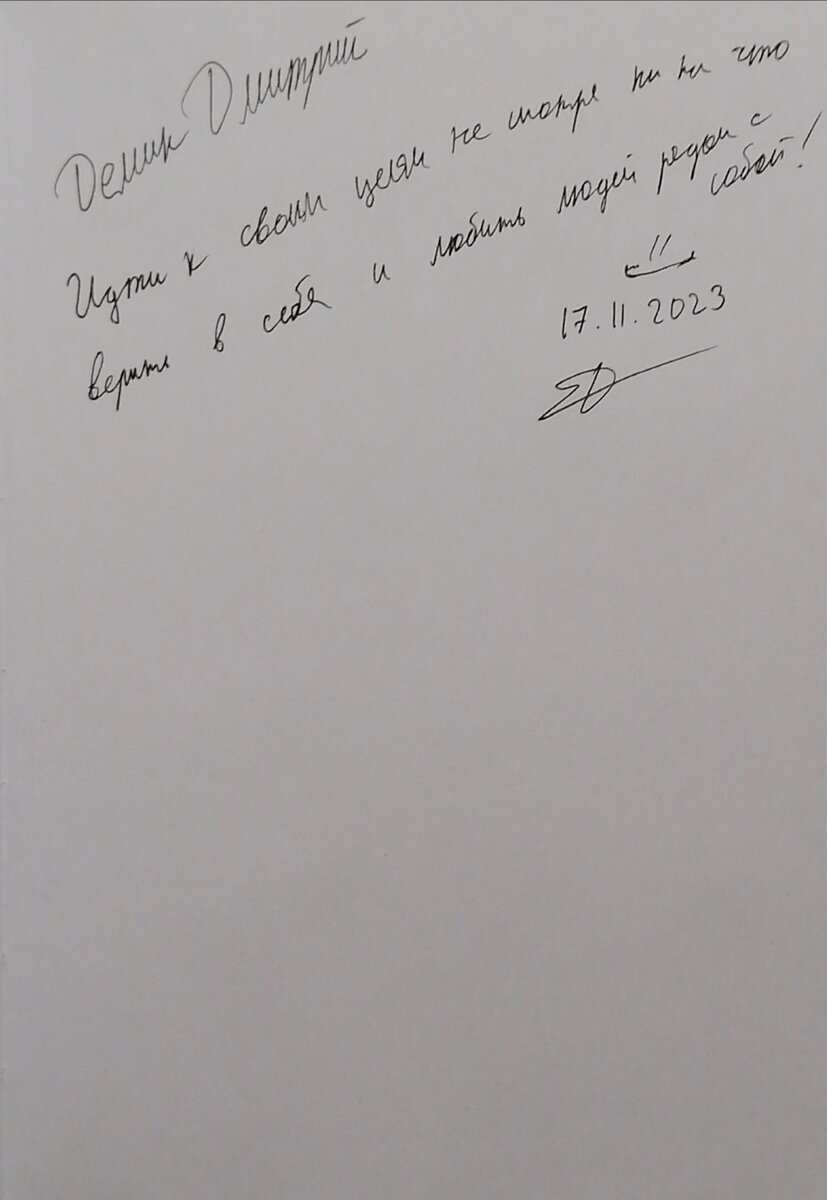 Демин Дмитрий
Идти к своим целям не смотря ни на что
верить в себя и любить людей рядом с
собой!
17.11.2023